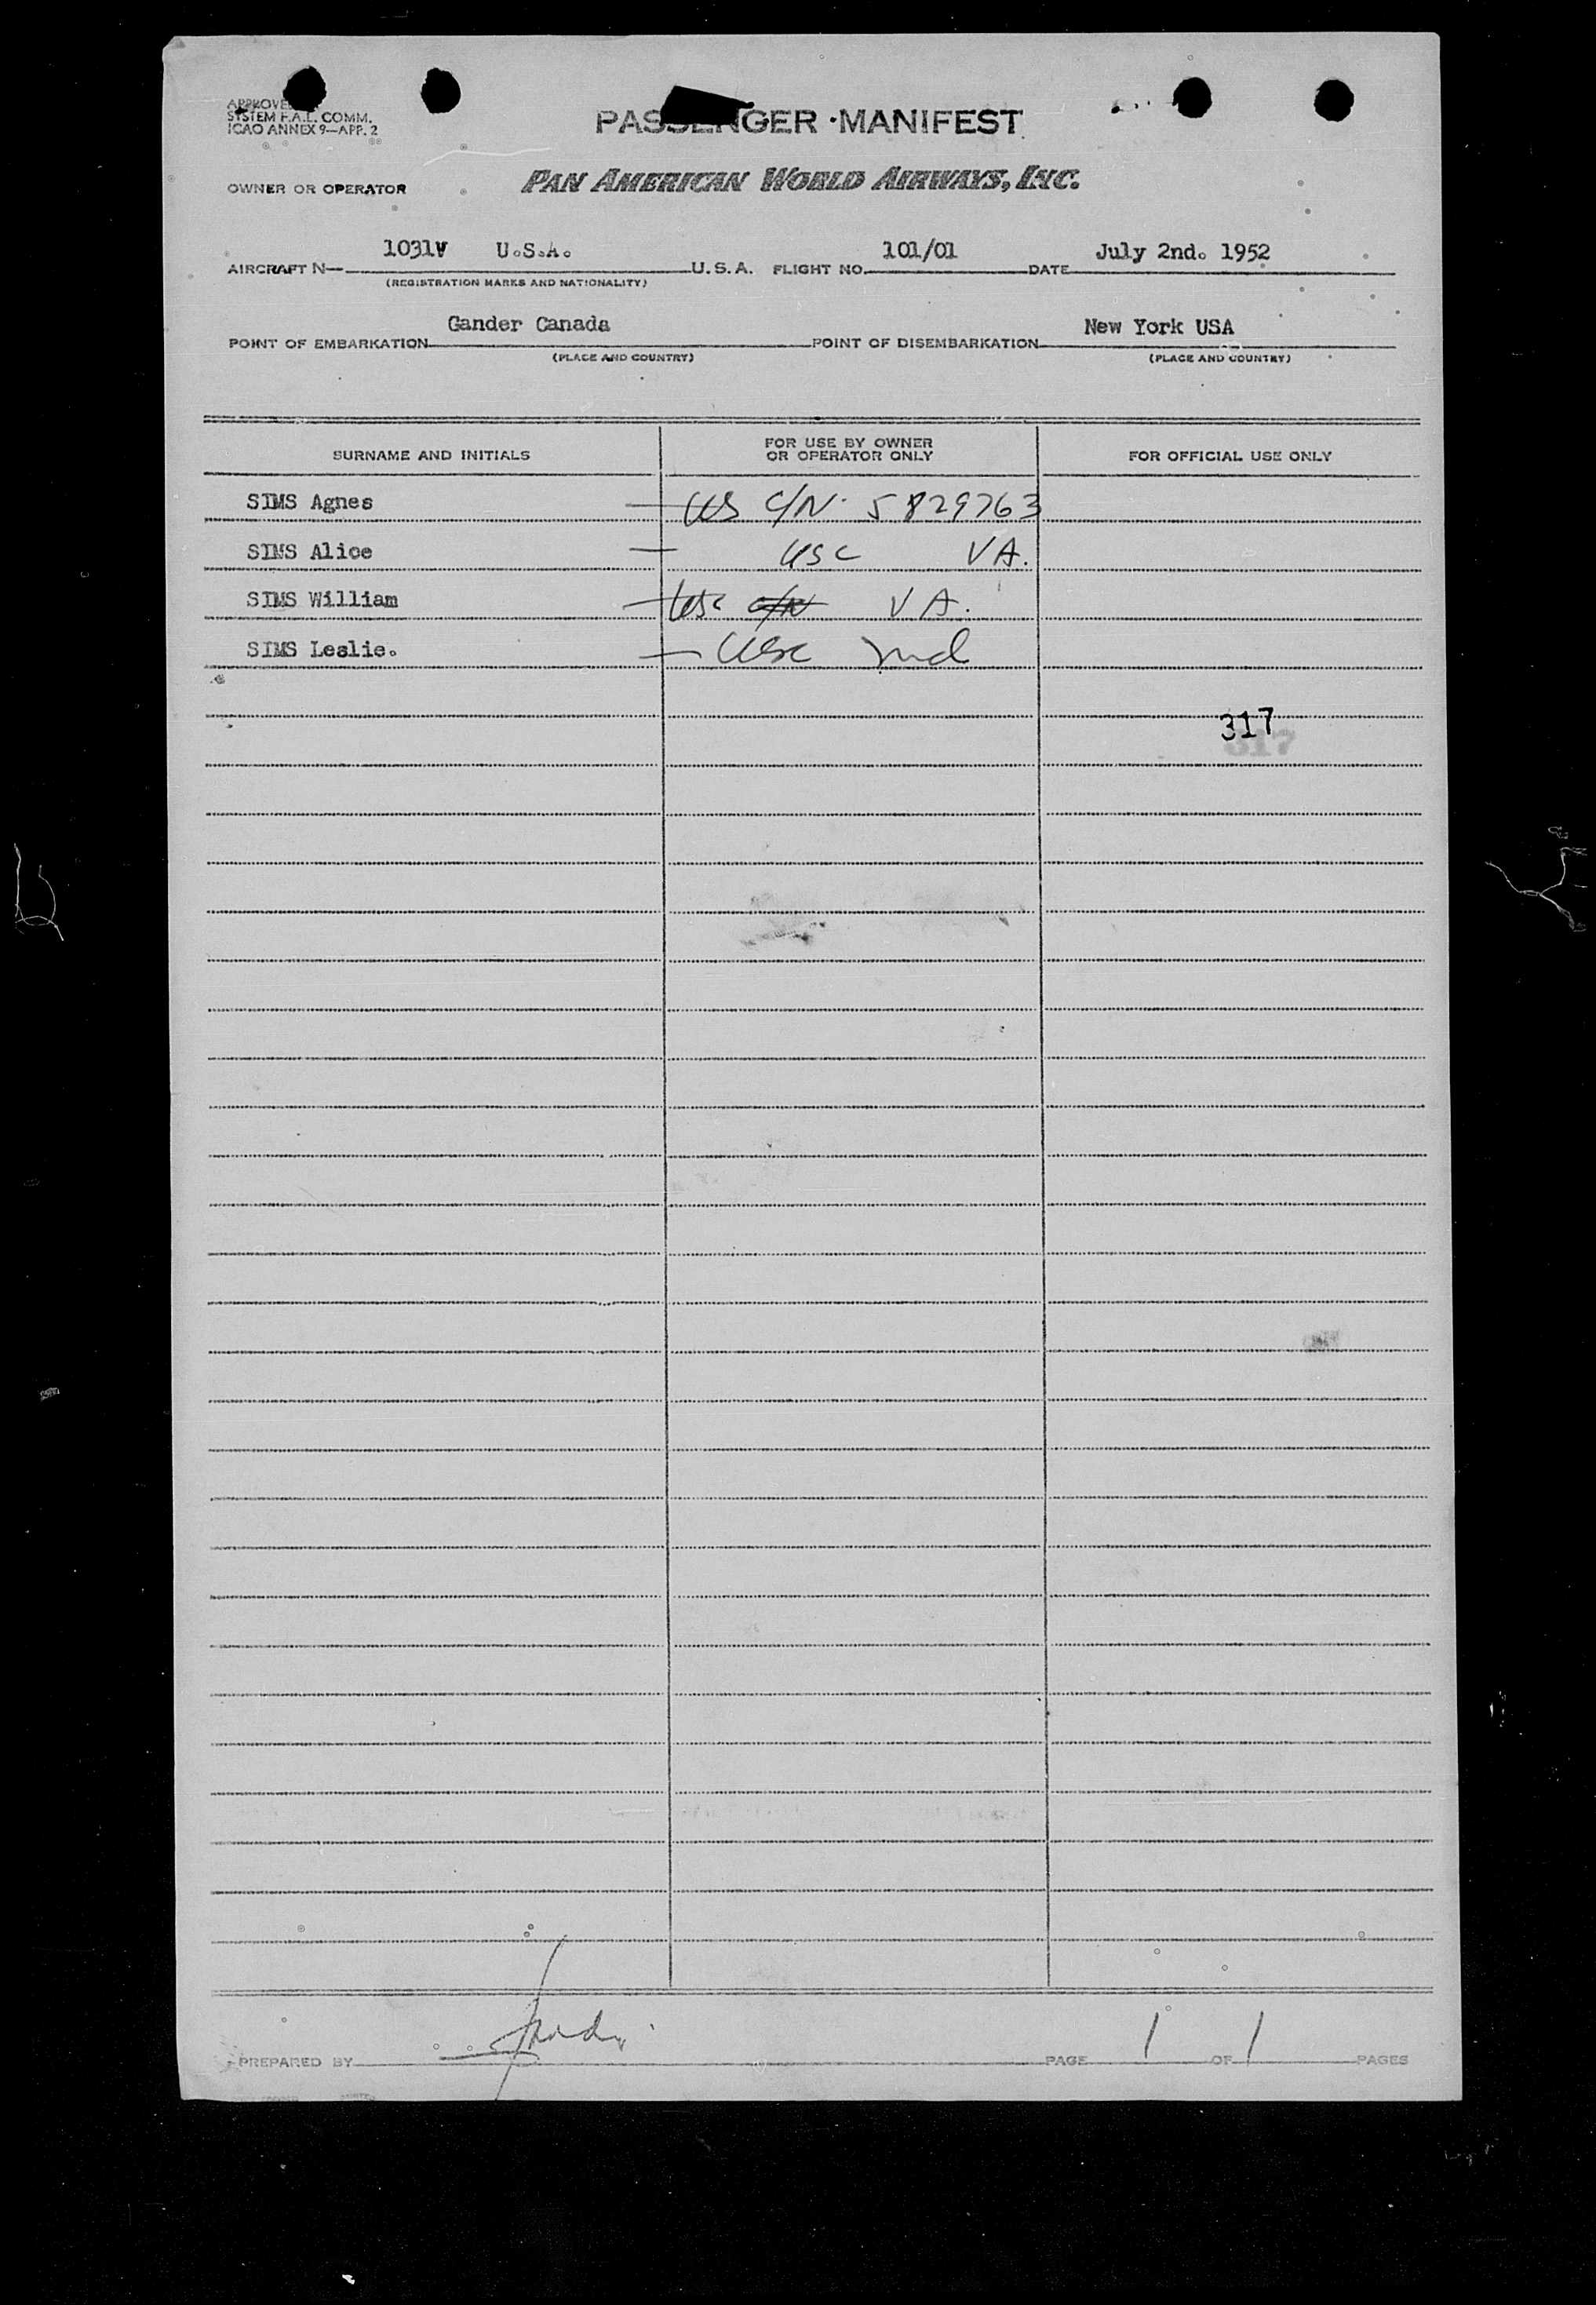 APPROVE
SYSTEM F.A.L. COMM.
ICAO ANNEX 9—APP. 2
PASSENGER MANIFEST
OWNER OR OPERATOR
PAN AMERICAN WORLD AIRWAYS, INC.
AIRCRAFT N— 1031V U.S.A. U.S.A. FLIGHT NO. 101/01 DATE July 2nd. 1952
(REGISTRATION MARKS AND NATIONALITY)
POINT OF EMBARKATION Gander Canada POINT OF DISEMBARKATION New York USA
(PLACE AND COUNTRY) (PLACE AND COUNTRY)
SURNAME AND INITIALS FOR USE BY OWNER OR OPERATOR ONLY FOR OFFICIAL USE ONLY
SIMS Agnes — US C/N. 5829763
SIMS Alice — USC VA.
SIMS William — USC C/N VA.
SIMS Leslie. — USC Md
317
317
PREPARED BY PAGE 1 OF 1 PAGES